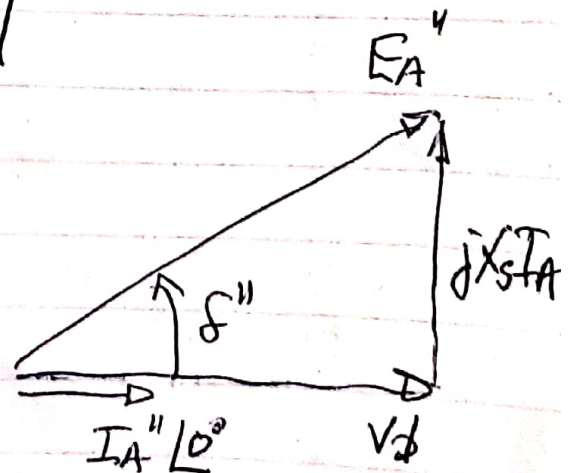 E_A"
jX_sI_A
δ"
I_A" ∠0°
Vφ